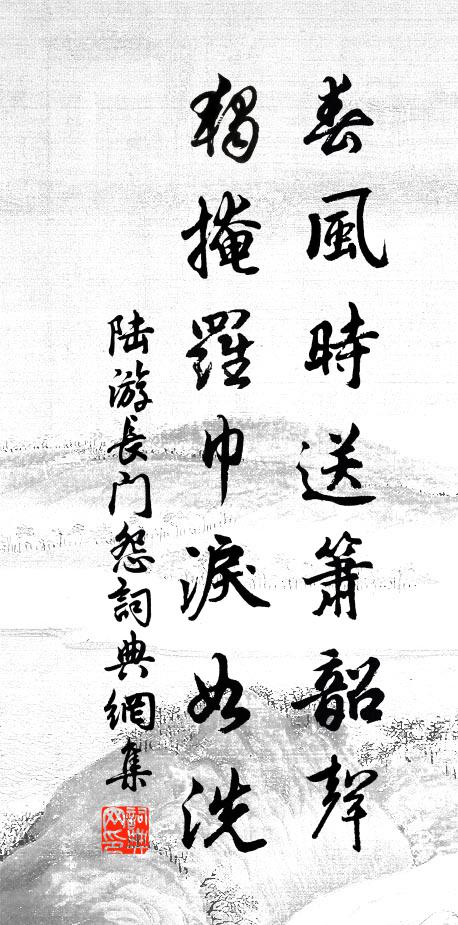 春風時送簫韶聲
獨掩羅巾淚如洗
陆游長门怨詞典網集